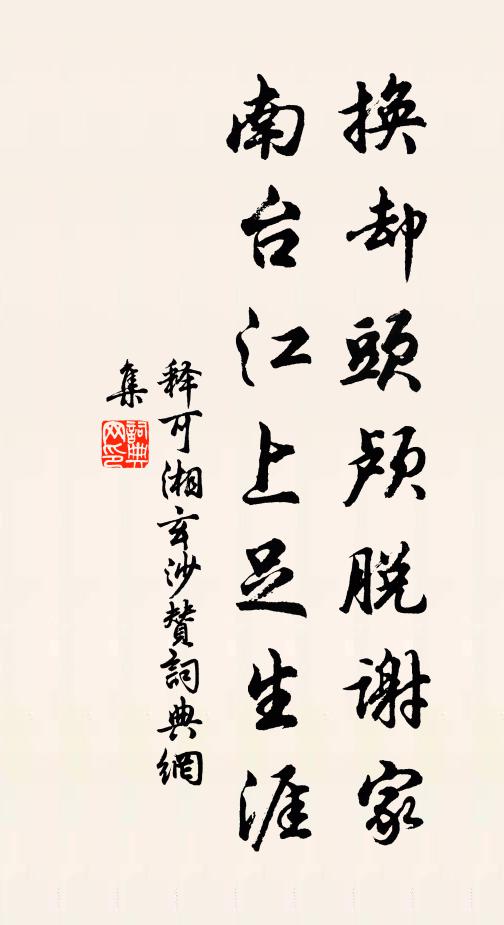 换却頭颅脱谢家
南台江上足生涯
释可湘玄沙赞詞典網
集
詞典网印